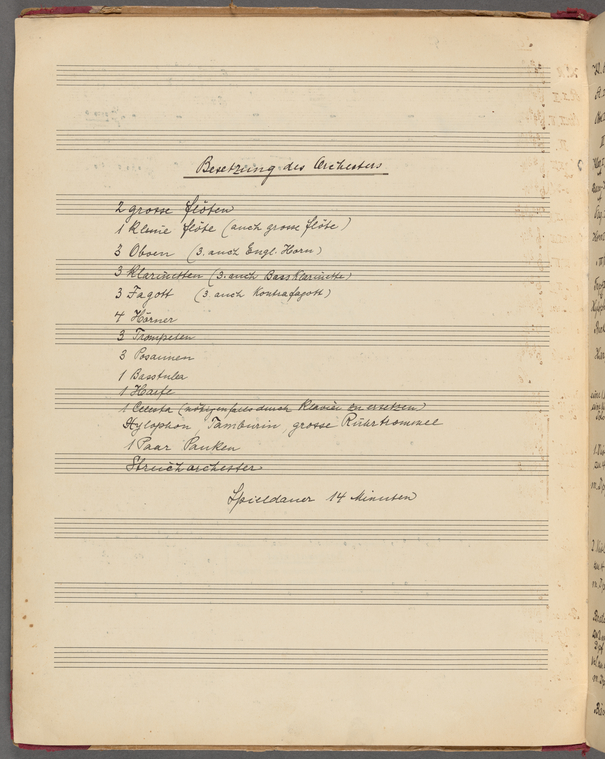 Besetzung des Orchesters
2 grosse Flöten
1 kleine Flöte (auch grosse Flöte)
3 Oboen (3. auch Engl. Horn)
3 Klarinetten (3. auch Bassklarinette)
3 Fagott (3. auch Kontrafagott)
4 Hörner
3 Trompeten
3 Posaunen
1 Basstuba
1 Harfe
1 Celesta (nötigenfalls durch Klavier zu ersetzen)
Xylophon, Tamburin, grosse Rührtrommel
1 Paar Pauken
Streichorchester.
Spieldauer 14 Minuten